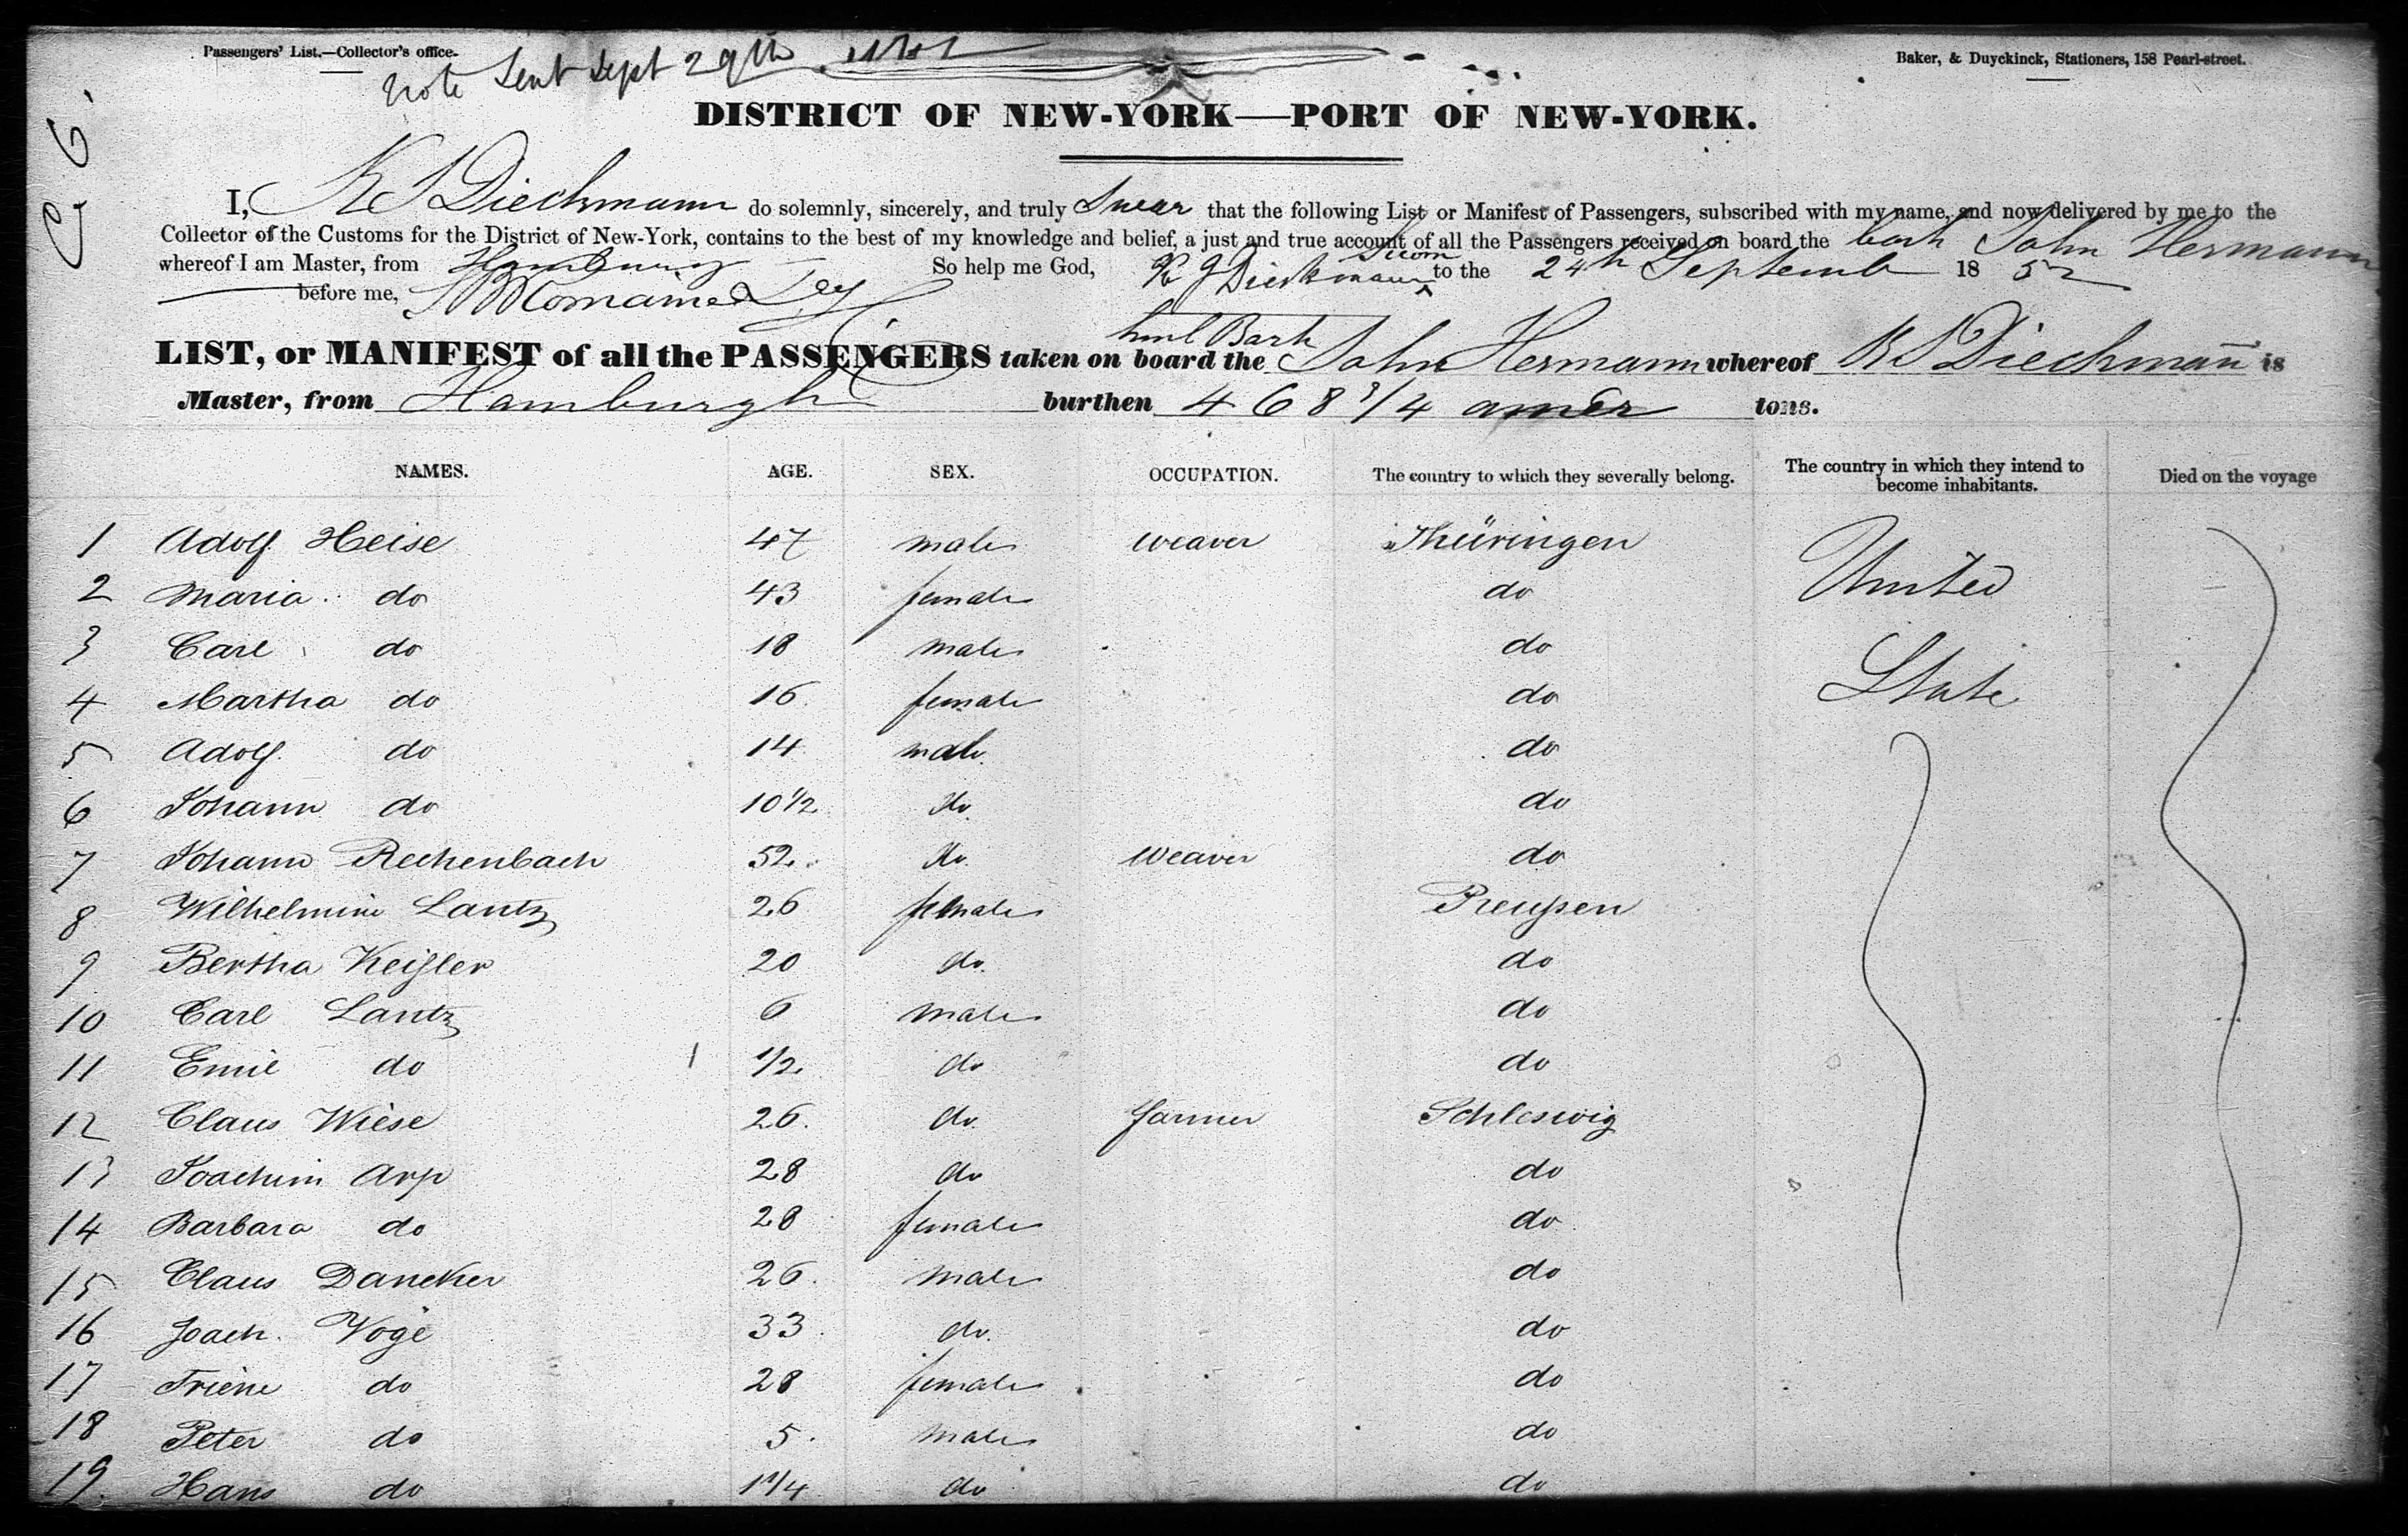 Passengers' List.—Collector's office.
Note Sent Sept 29th
Baker, & Duyckinck, Stationers, 158 Pearl-street.
C. G.
DISTRICT OF NEW-YORK—PORT OF NEW-YORK.
I, Diechmann do solemnly, sincerely, and truly Swear that the following List or Manifest of Passengers, subscribed with my name, and now delivered by me to the
Collector of the Customs for the District of New-York, contains to the best of my knowledge and belief, a just and true account of all the Passengers received on board the bark John Hermann
whereof I am Master, from Hamburg So help me God, Dieckmann Sworn to the 24th Septemb 1852
before me,
LIST, or MANIFEST of all the PASSENGERS taken on board the Bark John Hermann whereof Diechmann̅ is
Master, from Hamburgh burthen 468 3/4 amer tons.
NAMES. AGE. SEX. OCCUPATION. The country to which they severally belong. The country in which they intend to become inhabitants. Died on the voyage
1 Adolf Heise 47 male weaver Thüringen United
2 Maria do 43 female do
3 Carl do 18 male do State
4 Martha do 16 female do
5 Adolf do 14 male do
6 Johann do 10 1/2 do do
7 Johann Rechenbach 52 do weaver do
8 Wilhelmine Lantz 26 female Preußen
9 Bertha Keißler 20 do do
10 Carl Lantz 6 male do
11 Emil do 1/2 do do
12 Claus Wiese 26 do farmer Schleswig
13 Joachim Arp 28 do do
14 Barbara do 28 female do
15 Claus Dancker 26 male do
16 Joach. Voge 33 do do
17 Triene do 28 female do
18 Peter do 5 male do
19 Hans do 1 1/4 do do